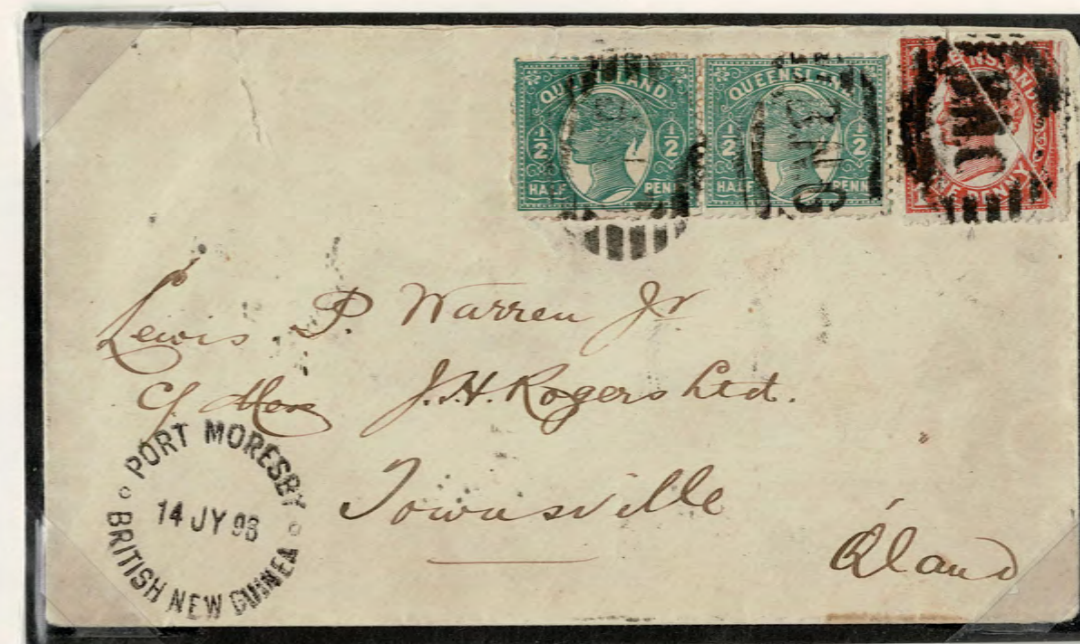 QUEENSLAND
½ ½
HALF PENNY
QUEENSLAND
½ ½
HALF PENNY
QUEENSLAND
ONE PENNY
BNG
BNG
Lewis P. Warren Jr
c/ Mess J.H. Rogers Ltd.
Townsville
Q'land
PORT MORESBY
14 JY 98
BRITISH NEW GUINEA